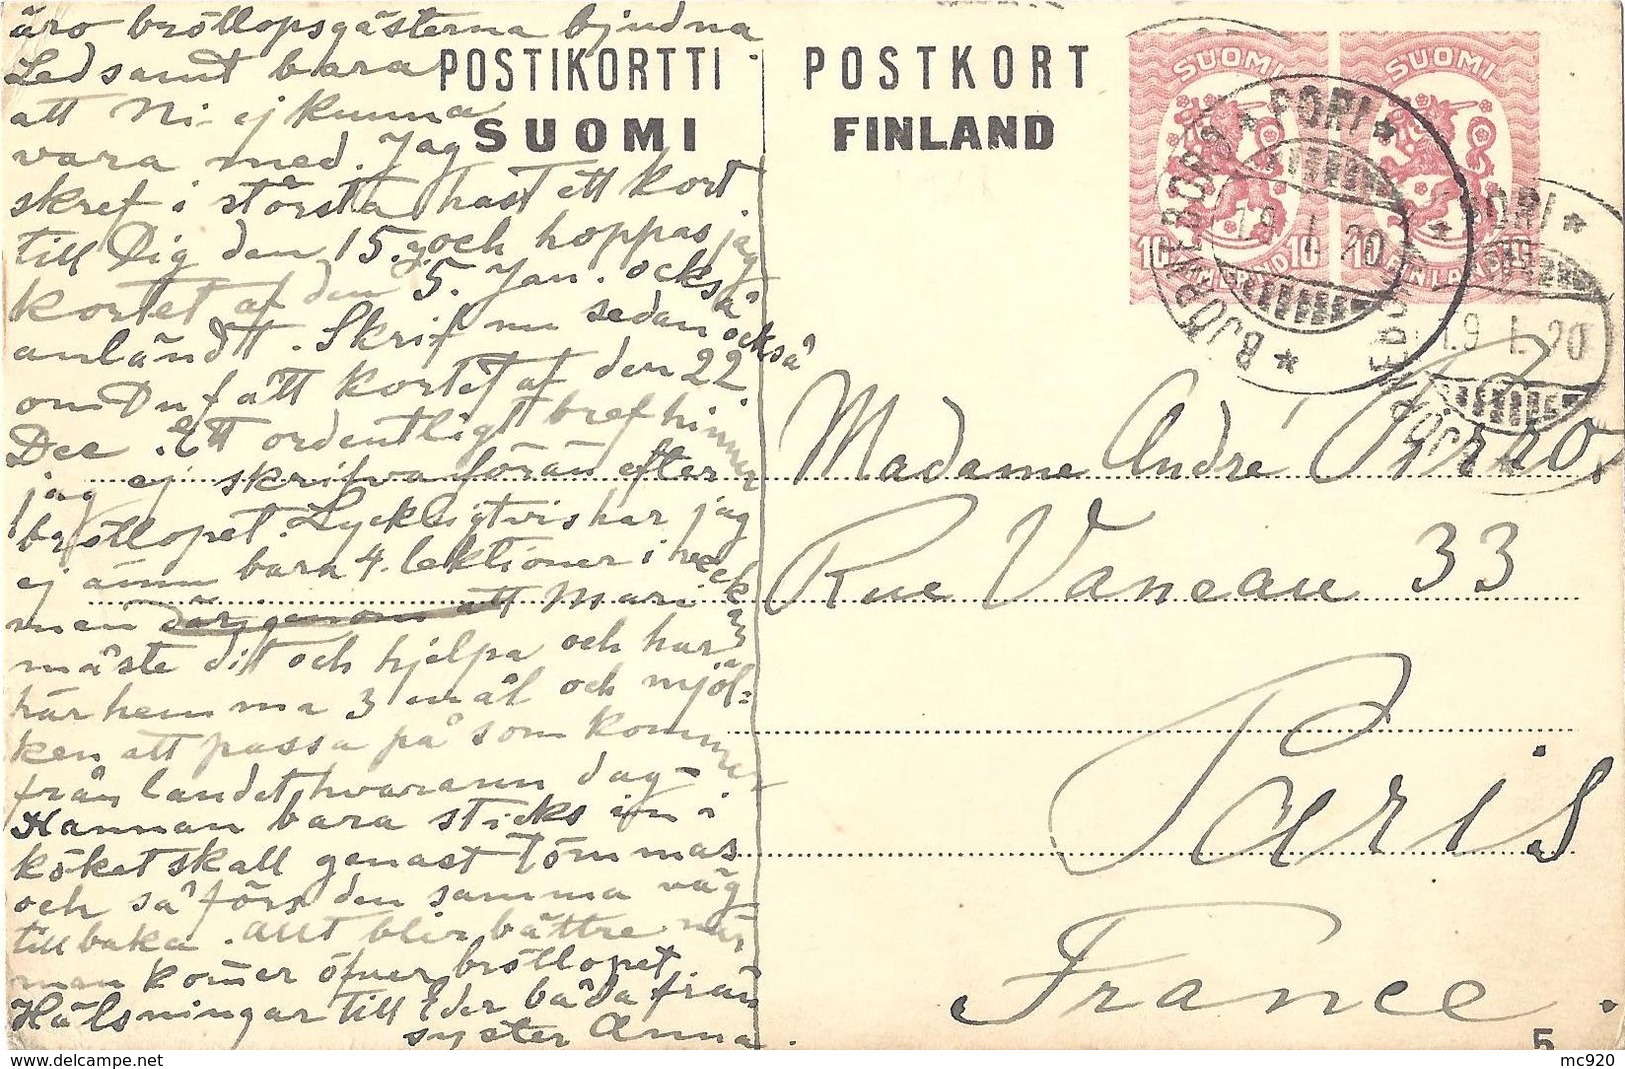 äro bröllopsgästerna bjudna
Ledsamt bara
att Ni ej kunna
vara med. Jag
skref i största hast ett kort
till Dig den 15. och hoppas jag
kortet af den 5. Jan. också
anländt. Skrif nu sedan också
om Du fått kortet af den 22
Dec. Ett ordentligt bref hinner
jag ej skrifva förän efter
bröllopet. Lyckligtvis har jag
ej ännu bara 4. lektioner i veckan
men att Mari
måste dit och hjelpa och har
här hemma 3 mål och mjöl-
ken att passa på som kommer
från landet hvarann dag-
Kannan bara sticks in i
köket skall genast tömmas
och så förs den samma väg
tillbaka. Allt blir bättre när
man kom̄er öfver bröllopet
Hälsningar till Eder båda från
syster Anna.
POSTIKORTTI
SUOMI
POSTKORT
FINLAND
SUOMI
10 10
SUOMI
10 FINLAND 10
* PORI *
19 I. 20
BJÖRNEBORG
* PORI *
19 I. 20
BJÖRNEBORG
Madame André
Rue Vaneau 33
Paris
France.
5
mc920